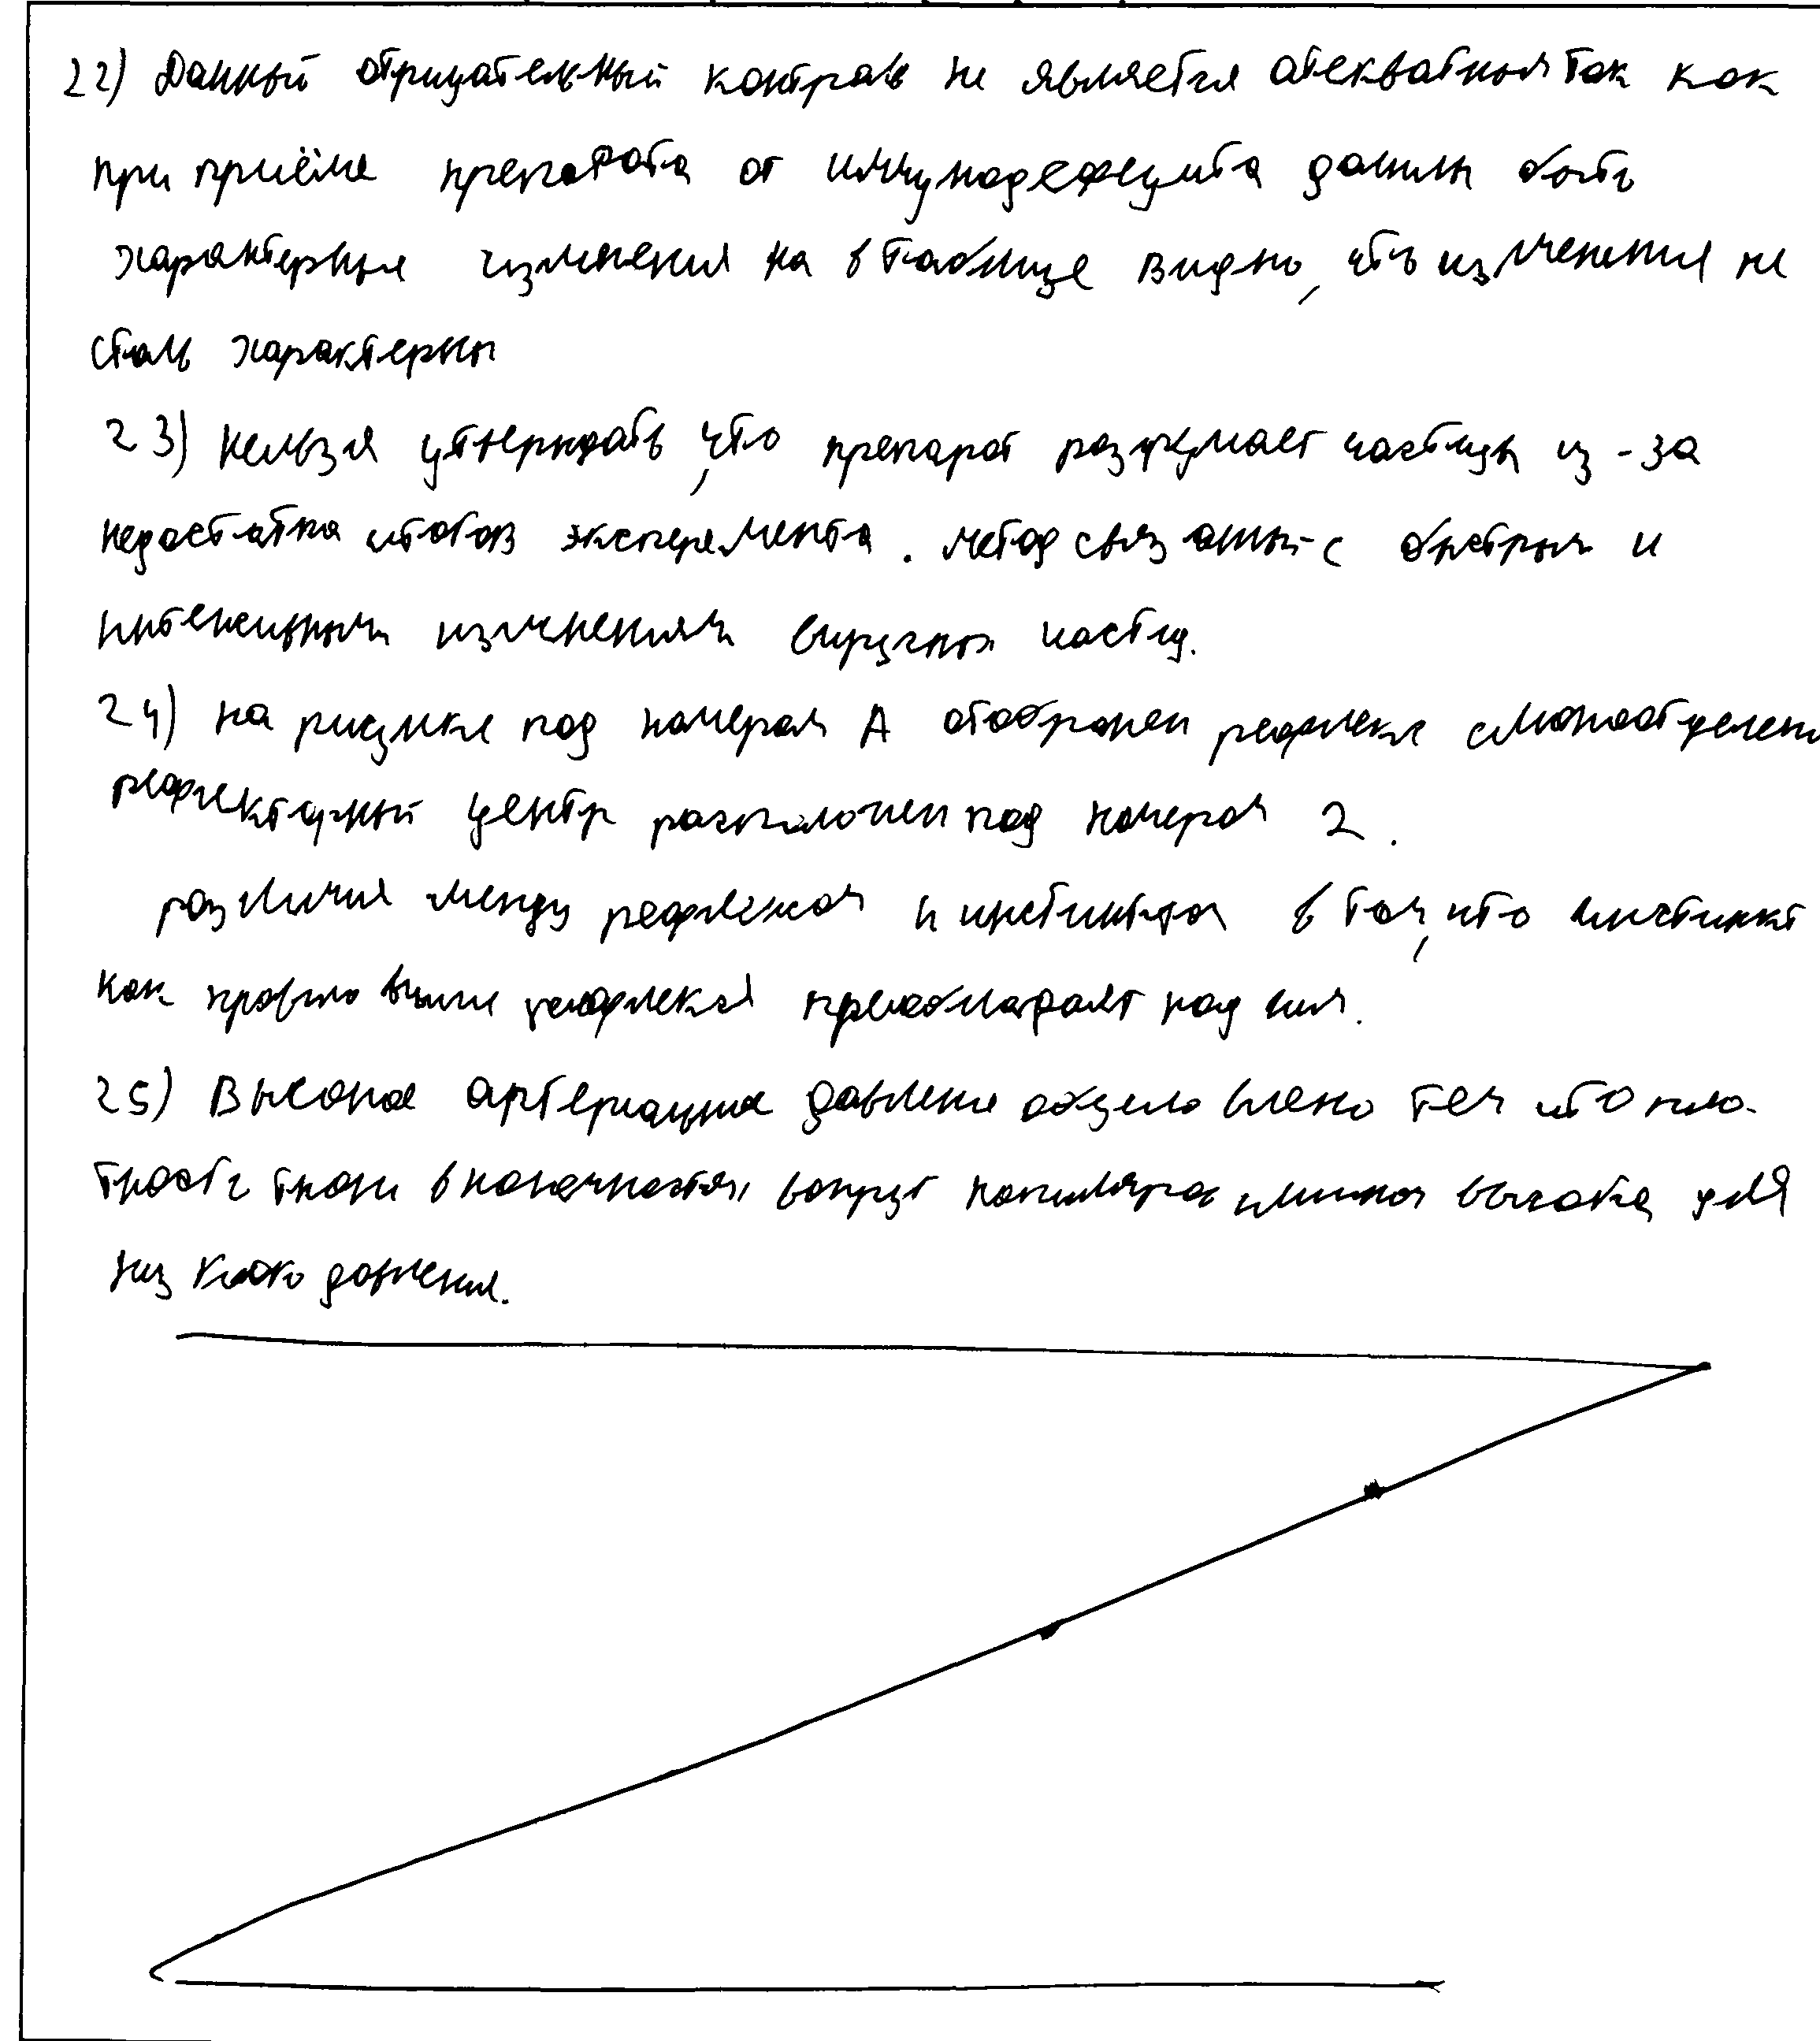 22) Данный отрицательный контроль не является атекватным так как
при приёме препарата от иммунодефецита должны быть
характерные изменения на в таблице видно, что изменения не
столь характерны
23) Нельзя утверждать, что препарат разрушает частицы из-за
недостатка итогов эксперемента. Метод связанный с быстрым и
изменениям вирусных частиц.
24) на рисунке под номером А отображен рефлекс
рефлекторный центр расположен под номером 2.
различия между рефлексом и инстинктом в том, что инстинкт
как правило выше рефлекса преобладает над ним.
25) Высокое давление обусловлено тем что пло-
тность ткани в конечностях вокруг капиляров слишком высока для
низкого давления.